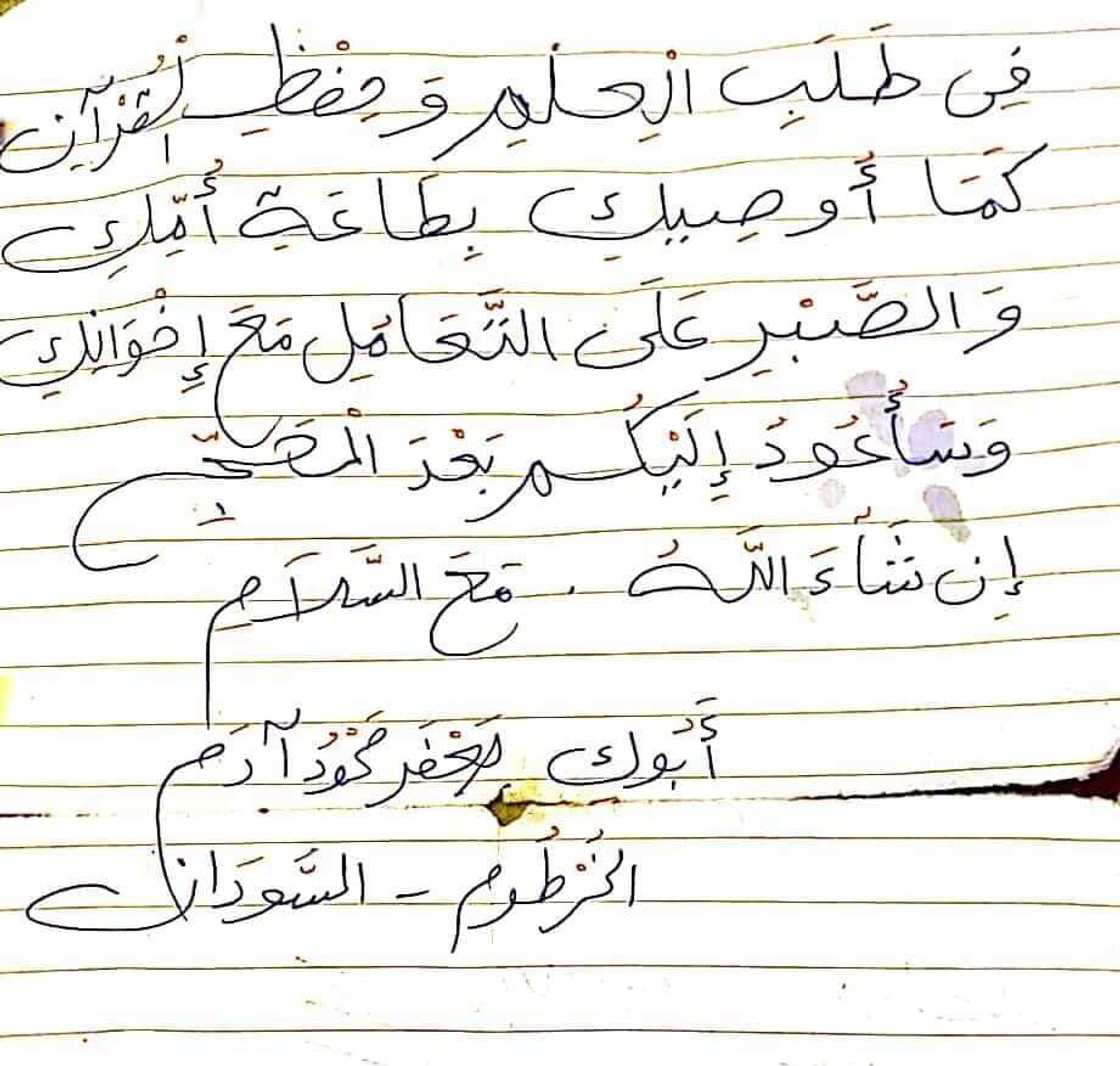 فِى طَلَبِ الْعِلْمِ وَحِفْظِ الْقُرْآنِ
كَمَا أُوصِيكِ بِطَاعَةِ أُمِّكِ
وَالصَّبْرِ عَلَى التَّعَامُلِ مَعَ إِخْوَانِكِ
وَسَأَعُودُ إِلَيْكُم بَعْدَ الْحَجِّ
إِن شَآءَ اللَّهُ . مَعَ السَّلَامِ
أَبُوكِ جَعْفَر مَحْمُودُ آدَمَ
الخُرْطُوم - السَّودَان